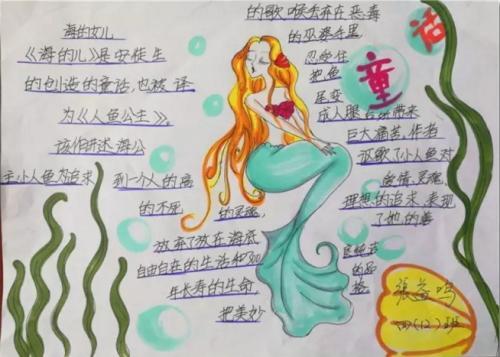 海的女儿
《海的儿》是安徒生
的创造的童话，也被译
为《人鱼公主》。
该作讲述海公
主小人鱼为追求
到一个人的高
的不死
的灵魂，
放弃了放在海底
自由自在的生活和
年长寿的生命，
把美妙
的歌喉丢弃在恶毒
的巫婆手里，
忍受住
把鱼
尾变
成人腿后所带来
巨大痛苦，作者
讴歌了小人鱼对
爱情、灵魂、
理想的追求，表现
了她的善
良纯洁
的品
格。
童话
四(12)班